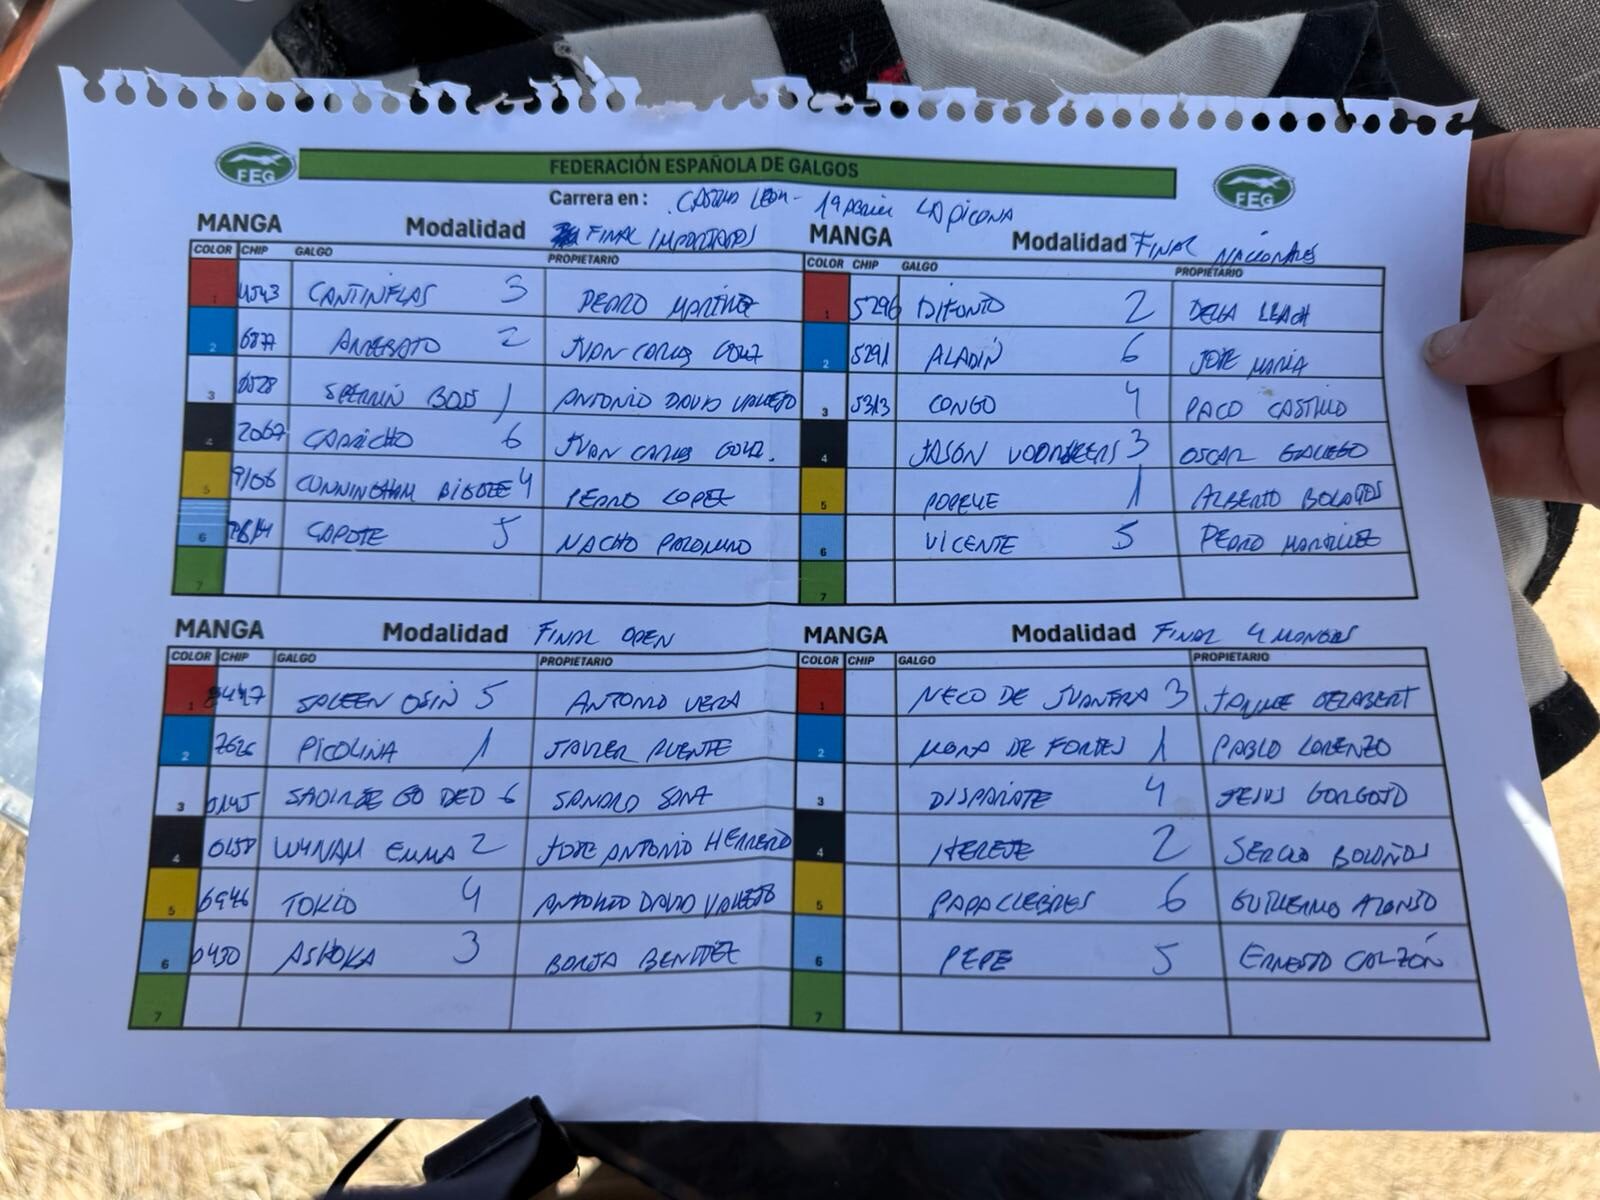 FEDERACIÓN ESPAÑOLA DE GALGOS
FEG
FEG
Carrera en: CASTILLA LEON - 19 ABRIL LA PICONA
MANGA Modalidad FINAL IMPORTADOS
COLOR CHIP GALGO PROPIETARIO
1 4543 CANTINFLAS 3 PEDRO MARTINEZ
2 6877 ARREBATO 2 JUAN CARLOS
3 1 ANTONIO DAVID VALLEJO
4 2067 CAPRICHO 6 JUAN CARLOS
5 9108 CUNNINGHAM 4 PEDRO LOPEZ
6 CAPOTE 5 NACHO PALOMINO
7
MANGA Modalidad FINAL NACIONALES
COLOR CHIP GALGO PROPIETARIO
1 5296 DIFUNTO 2 DELGA LEACH
2 5291 ALADÍN 6 JOSE MARIA
3 5313 CONGO 4 PACO CASTILLO
4 JASON VOORHEERS 3 OSCAR GALLEGO
5 POPEYE 1 ALBERTO BOLAÑOS
6 VICENTE 5 PEDRO MARTINEZ
7
MANGA Modalidad FINAL OPEN
COLOR CHIP GALGO PROPIETARIO
1 SALEEN OSIN 5 ANTONIO VERA
2 7626 PICOLINA 1 JAVIER PUENTE
3 0145 GO DED 6 SANDRO
4 0158 WYNAM EMMA 2 JOSE ANTONIO HERRERO
5 6946 TOKIO 4 ANTONIO DAVID VALLEJO
6 0430 ASHOKA 3 BORJA BENITEZ
7
MANGA Modalidad FINAL 4 MANGAS
COLOR CHIP GALGO PROPIETARIO
1 NECO DE JUANFRA 3 JAUME GELABERT
2 MORA DE FORTES 1 PABLO LORENZO
3 DISPARATE 4 JESUS GORGOJO
4 HEREJE 2 SERGIO BOLAÑOS
5 PAPACLEBRES 6 GUILLERMO ALONSO
6 PEPE 5 ERNESTO CALZÓN
7